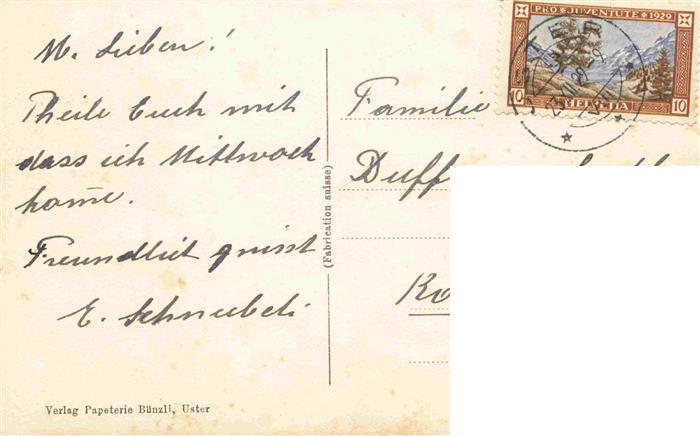 M. Lieben!
Theile Euch mit
dass ich Mittwoch
kom̅e.
Freundlich grüsst
E. Schnebeli
Verlag Papeterie Bünzli, Uster
(Fabrication suisse)
PRO JUVENTUTE 1929
10 HELVETIA 10
USTER
Familie